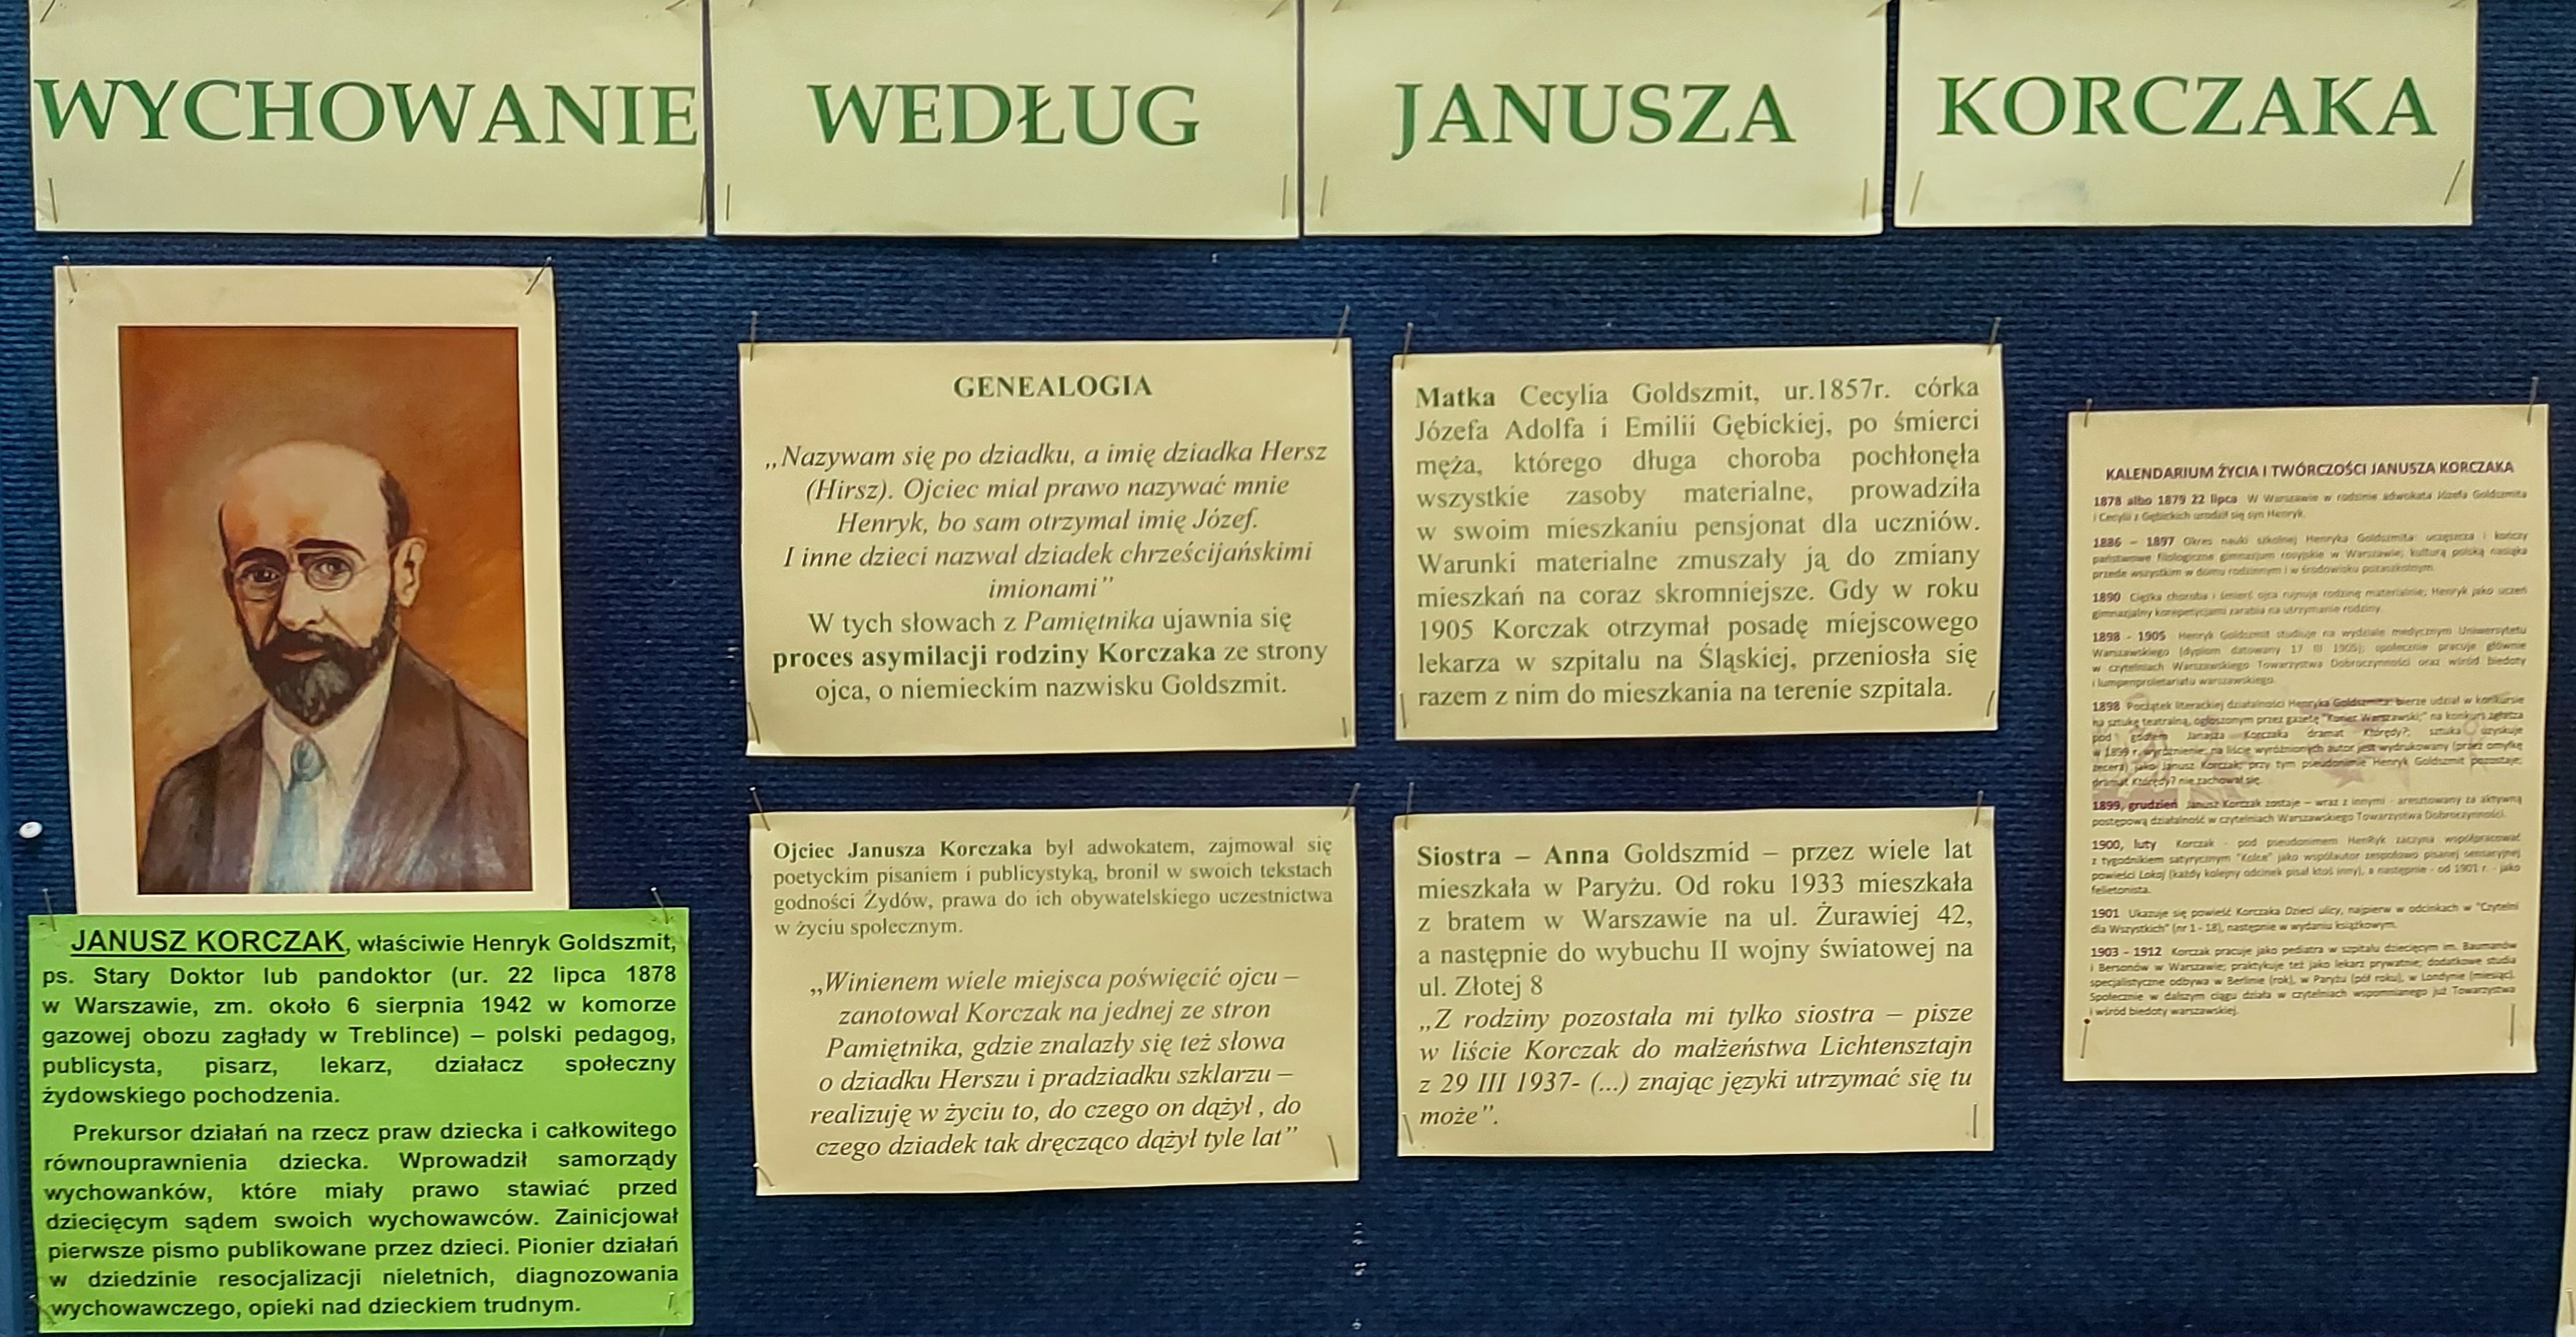 WYCHOWANIE WEDŁUG JANUSZA KORCZAKA
JANUSZ KORCZAK, właściwie Henryk Goldszmit,
ps. Stary Doktor lub pandoktor (ur. 22 lipca 1878
w Warszawie, zm. około 6 sierpnia 1942 w komorze
gazowej obozu zagłady w Treblince) – polski pedagog,
publicysta, pisarz, lekarz, działacz społeczny
żydowskiego pochodzenia.
Prekursor działań na rzecz praw dziecka i całkowitego
równouprawnienia dziecka. Wprowadził samorządy
wychowanków, które miały prawo stawiać przed
dziecięcym sądem swoich wychowawców. Zainicjował
pierwsze pismo publikowane przez dzieci. Pionier działań
w dziedzinie resocjalizacji nieletnich, diagnozowania
wychowawczego, opieki nad dzieckiem trudnym.
GENEALOGIA
„Nazywam się po dziadku, a imię dziadka Hersz
(Hirsz). Ojciec miał prawo nazywać mnie
Henryk, bo sam otrzymał imię Józef.
I inne dzieci nazwał dziadek chrześcijańskimi
imionami”
W tych słowach z Pamiętnika ujawnia się
proces asymilacji rodziny Korczaka ze strony
ojca, o niemieckim nazwisku Goldszmit.
Ojciec Janusza Korczaka był adwokatem, zajmował się
poetyckim pisaniem i publicystyką, bronił w swoich tekstach
godności Żydów, prawa do ich obywatelskiego uczestnictwa
w życiu społecznym.
„Winienem wiele miejsca poświęcić ojcu –
zanotował Korczak na jednej ze stron
Pamiętnika, gdzie znalazły się też słowa
o dziadku Herszu i pradziadku szklarzu –
realizuję w życiu to, do czego on dążył , do
czego dziadek tak dręcząco dążył tyle lat”
Matka Cecylia Goldszmit, ur.1857r. córka
Józefa Adolfa i Emilii Gębickiej, po śmierci
męża, którego długa choroba pochłonęła
wszystkie zasoby materialne, prowadziła
w swoim mieszkaniu pensjonat dla uczniów.
Warunki materialne zmuszały ją do zmiany
mieszkań na coraz skromniejsze. Gdy w roku
1905 Korczak otrzymał posadę miejscowego
lekarza w szpitalu na Śląskiej, przeniosła się
razem z nim do mieszkania na terenie szpitala.
Siostra – Anna Goldszmid – przez wiele lat
mieszkała w Paryżu. Od roku 1933 mieszkała
z bratem w Warszawie na ul. Żurawiej 42,
a następnie do wybuchu II wojny światowej na
ul. Złotej 8
„Z rodziny pozostała mi tylko siostra – pisze
w liście Korczak do małżeństwa Lichtensztajn
z 29 III 1937- (...) znając języki utrzymać się tu
może”.
KALENDARIUM ŻYCIA I TWÓRCZOŚCI JANUSZA KORCZAKA
1878 albo 1879 22 lipca W Warszawie w rodzinie adwokata Józefa Goldszmita
i Cecylii z Gębickich urodził się syn Henryk.
1886 – 1897 Okres nauki szkolnej Henryka Goldszmita: uczęszcza i kończy
państwowe filologiczne gimnazjum rosyjskie w Warszawie; kulturą polską nasiąka
przede wszystkim w domu rodzinnym i w środowisku pozaszkolnym.
1890 Ciężka choroba i śmierć ojca rujnuje rodzinę materialnie; Henryk jako uczeń
gimnazjalny korepetycjami zarabia na utrzymanie rodziny.
1898 - 1905 Henryk Goldszmit studiuje na wydziale medycznym Uniwersytetu
Warszawskiego (dyplom datowany 17 III 1905); społecznie pracuje głównie
w czytelniach Warszawskiego Towarzystwa Dobroczynności oraz wśród biedoty
i lumpenproletariatu warszawskiego.
1898 Początek literackiej działalności Henryka Goldszmita: bierze udział w konkursie
na sztukę teatralną, ogłoszonym przez gazetę "Kurier Warszawski;" na konkurs zgłasza
pod godłem Janasza Korczaka dramat Którędy?; sztuka uzyskuje
w 1899 r. wyróżnienie; na liście wyróżnionych autor jest wydrukowany (przez omyłkę
zecera) jako Janusz Korczak; przy tym pseudonimie Henryk Goldszmit pozostaje;
dramat Którędy? nie zachował się.
1899, grudzień Janusz Korczak zostaje – wraz z innymi - aresztowany za aktywną
postępową działalność w czytelniach Warszawskiego Towarzystwa Dobroczynności.
1900, luty Korczak - pod pseudonimem HenRyk zaczyna współpracować
z tygodnikiem satyrycznym "Kolce" jako współautor zespołowo pisanej sensacyjnej
powieści Lokaj (każdy kolejny odcinek pisał ktoś inny), a następnie - od 1901 r. - jako
felietonista.
1901 Ukazuje się powieść Korczaka Dzieci ulicy, najpierw w odcinkach w "Czytelni
dla Wszystkich" (nr 1 - 18), następnie w wydaniu książkowym.
1903 - 1912 Korczak pracuje jako pediatra w szpitalu dziecięcym im. Baumanów
i Bersonów w Warszawie; praktykuje też jako lekarz prywatnie; dodatkowe studia
specjalistyczne odbywa w Berlinie (rok), w Paryżu (pół roku), w Londynie (miesiąc).
Społecznie w dalszym ciągu działa w czytelniach wspomnianego już Towarzystwa
i wśród biedoty warszawskiej.